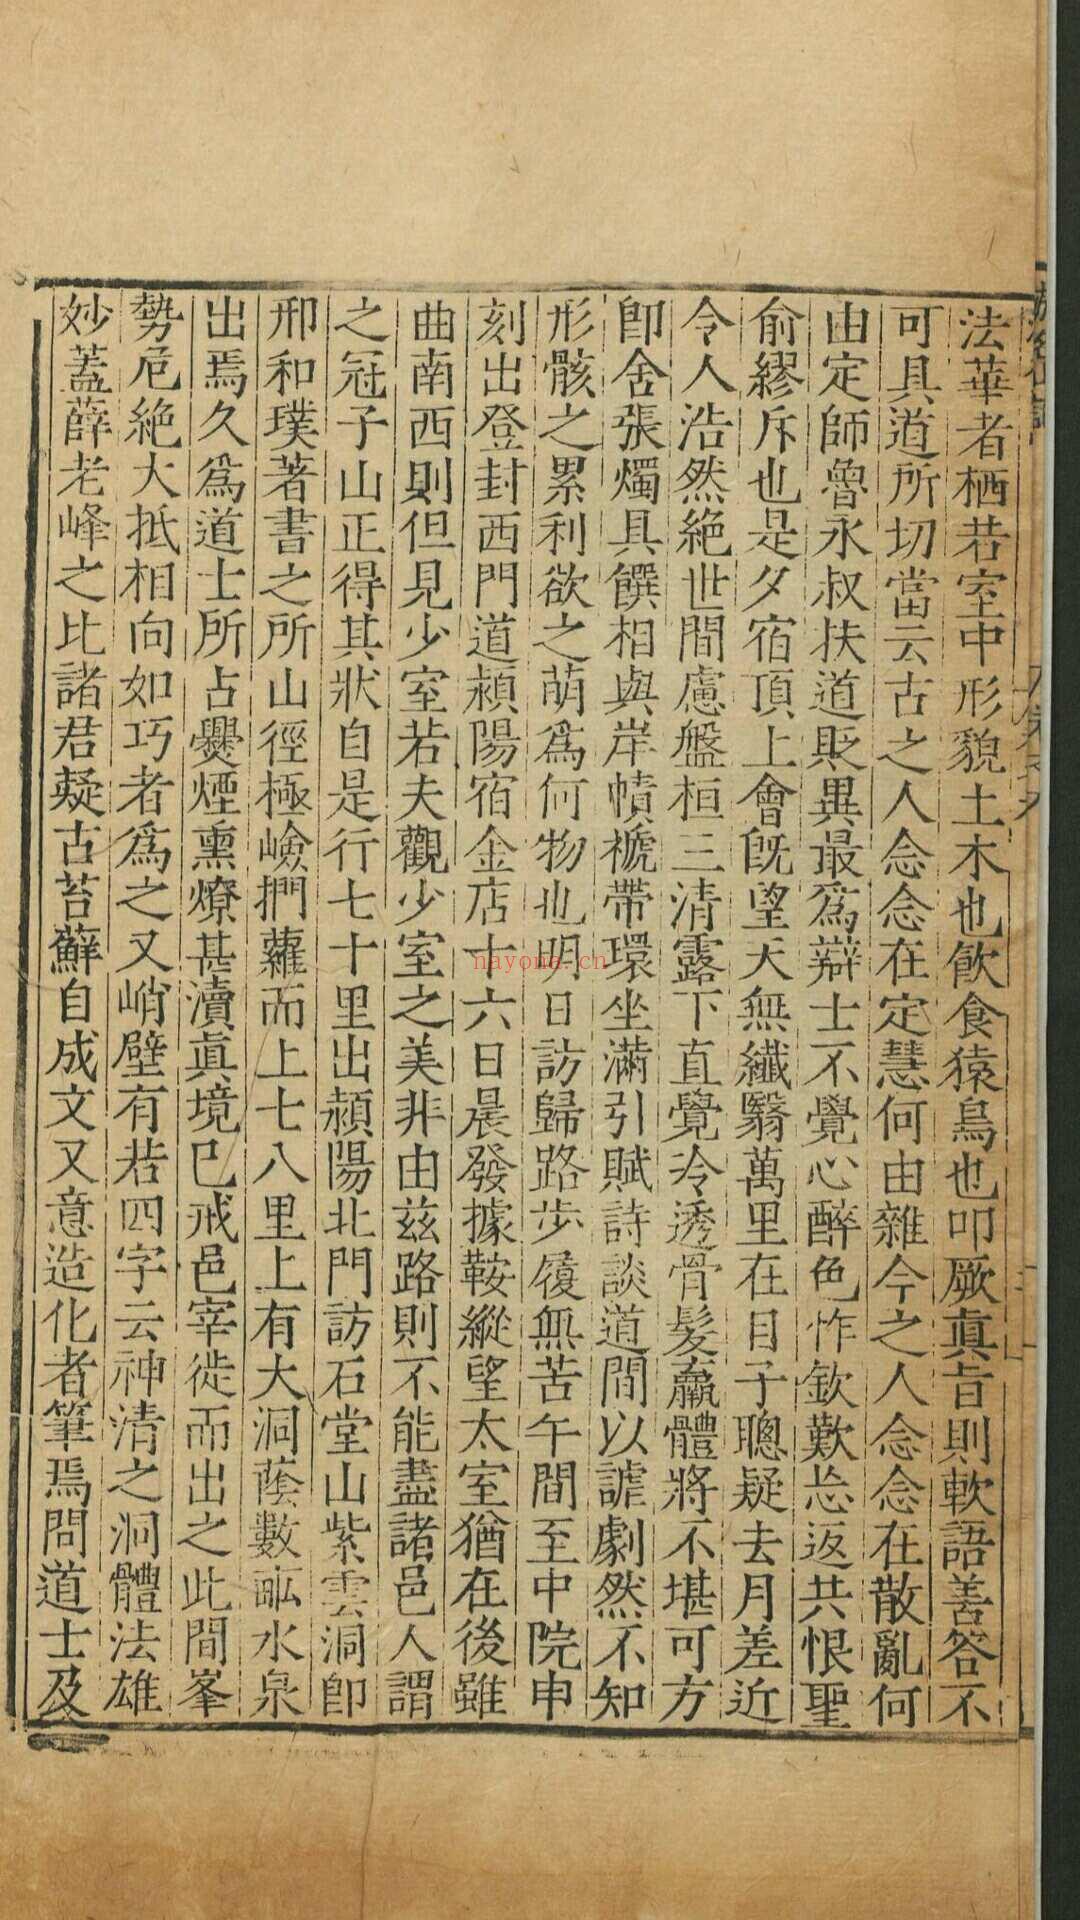 法華者栖若室中形貌土木也飲食猿鳥也叩厥眞旨則軟語善答不
可具道所切當云古之人念念在定慧何由雜今之人念念在散亂何
由定師魯永叔扶道貶異最爲辯士不覺心醉色怍欽歎忘返共恨聖
俞繆斥也是夕宿頂上會旣望天無纖翳萬里在目子聰疑去月差近
令人浩然絶世間慮盤桓三清露下直覺冷透骨髮羸體將不堪可方
卽舍張燭具饌相與岸幘褫帶環坐滿引賦詩談道間以謔劇然不知
形骸之累利欲之萌爲何物也明日訪歸路步履無苦午間至中院申
刻出登封西門道潁陽宿金店十六日晨發據鞍縱望太室猶在後雖
曲南西則但見少室若夫觀少室之美非由茲路則不能盡諸邑人謂
之冠子山正得其狀自是行七十里出潁陽北門訪石堂山紫雲洞卽
邢和璞著書之所山徑極嶮捫蘿而上七八里上有大洞蔭數畝水泉
出焉久爲道士所占爨煙熏燎甚瀆眞境已戒邑宰徙而出之此間峯
勢危絶大抵相向如巧者爲之又峭壁有若四字云神清之洞體法雄
妙蓋薛老峰之比諸君疑古苔蘚自成文又意造化者筆焉問道士及
nayona.cn